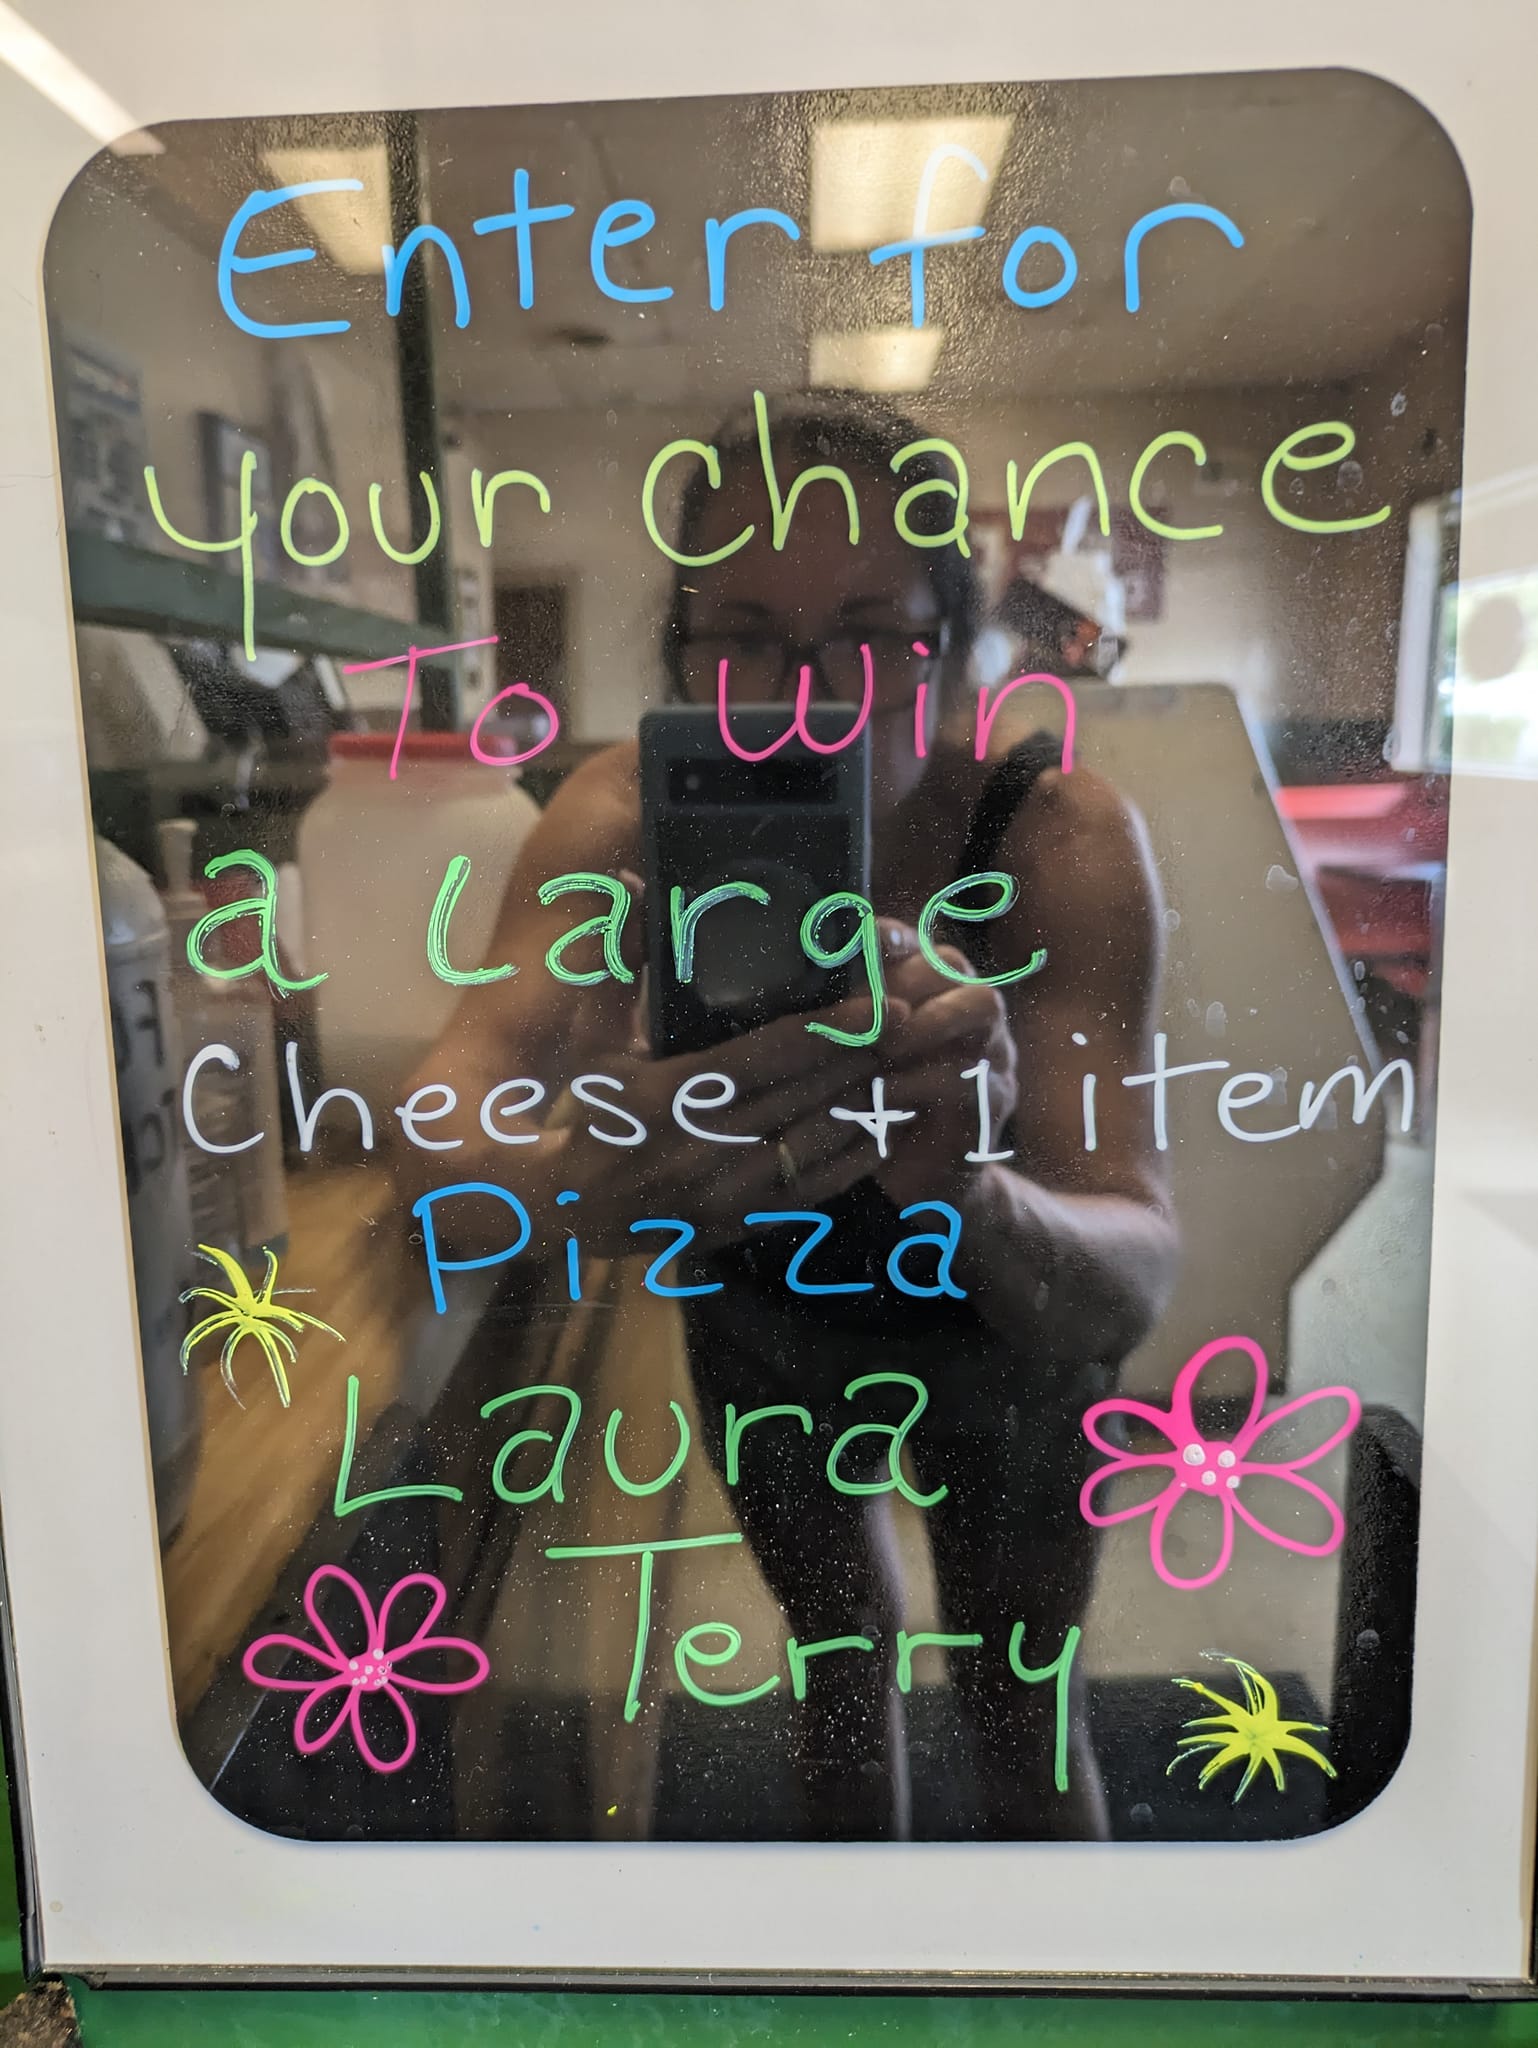 Enter for
your chance
To win
a Large
Cheese + 1 item
Pizza
Laura
Terry